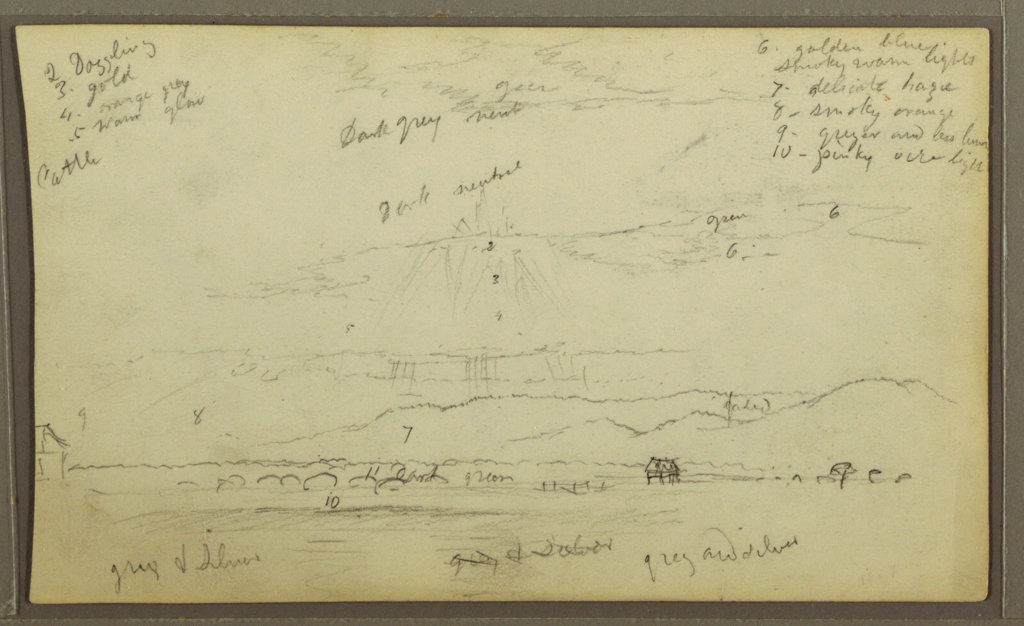 2 Dazzling
3. gold
4. orange grey
5 warm glow
Cattle
6. golden blue
smoky warm lights
7. delicate haze
8 - smoky orange
9 - greyer and less
10 - pinky light
Dark grey
Dark neutral
2
6
6
3
4
5
9
8
7
11 Dark green
10
grey & Silver
grey & Silver
grey and silver